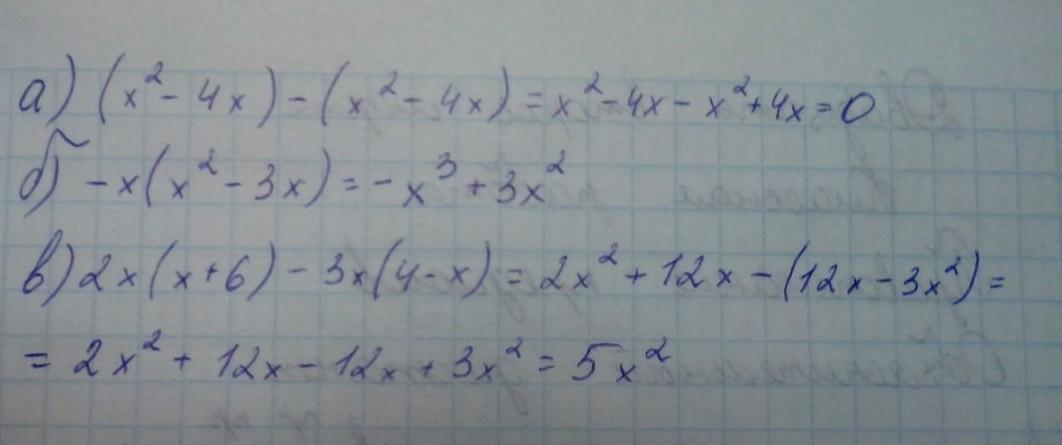 а) (x² - 4x) - (x² - 4x) = x² - 4x - x² + 4x = 0
б) -x(x² - 3x) = -x³ + 3x²
в) 2x(x+6) - 3x(4-x) = 2x² + 12x - (12x - 3x²) =
= 2x² + 12x - 12x + 3x² = 5x²